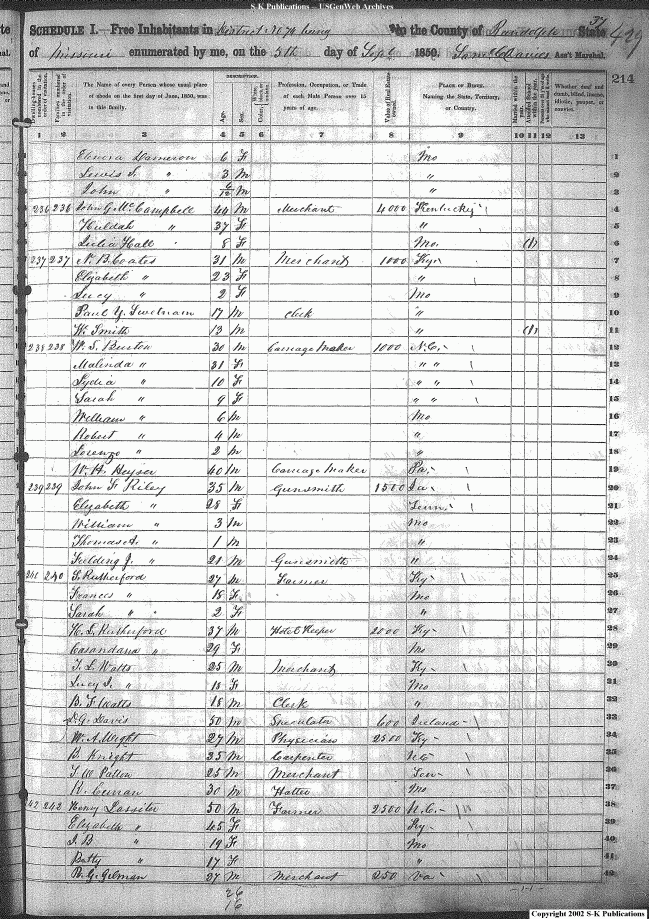 S-K Publications – USGenWeb Archives
SCHEDULE I.—Free Inhabitants in District No 74 in the County of Randolph State
429
of Missouri enumerated by me, on the 5th day of Sept 1850. Ass't Marshal.
214
DESCRIPTION.
The Name of every Person whose usual place of abode on the first day of June, 1850, was in this family.
Age
Sex
Profession, Occupation, or Trade of each Male Person over 15 years of age.
Value of Real Estate owned.
PLACE OF BIRTH. Naming the State, Territory, or Country.
Whether deaf and dumb, blind, insane, idiotic, pauper, or convict.
1 2 3 4 5 6 7 8 9 10 11 12 13
Dameron 6 F Mo 1
Lewis " 3 M " 2
John " 6/12 M " 3
236 236 John G. McCampbell 44 M Merchant 4000 Kentucky 4
Huldah " 37 F " 5
Hall 8 F Mo. (1) 6
237 237 N. B. Coates 31 M Merchant 1000 Ky 7
Elizabeth " 23 F " 8
Lucy " 2 F Mo 9
Paul Y. 17 M Clerk " 10
W. Smith 13 M " (1) 11
238 238 W. S. Burton 30 M Carriage Maker 1000 N.C. 12
Malinda " 31 F " " 13
Lydia " 10 F " " 14
Sarah " 9 F " " 15
William " 6 M Mo 16
Robert " 4 M " 17
Lorenzo " 2 M " 18
W. H. Heyser 40 M Carriage Maker Pa 19
239 239 John F. Riley 35 M Gunsmith 1500 20
Elizabeth " 28 F Tenn 21
William " 3 M Mo 22
Thomas A. " 1 M " 23
Fielding J. " 21 M Gunsmith " 24
240 S. Rutherford 27 M Farmer Ky 25
Frances " 18 F Mo 26
Sarah " 2 F " 27
H. L. Rutherford 37 M Hotel Keeper 2000 Ky 28
Casandana " 29 F Mo 29
T. L. Watts 25 M Merchant Ky 30
Lucy " 18 F Mo 31
B. F. Watts 18 M Clerk " 32
D. G. Davis 50 M Speculator 600 Ireland 33
W. A. Wight 27 M Physician 2500 Ky 34
B. Knight 35 M Carpenter N.C 35
W. Patton 25 M Merchant Ten 36
30 M Hatter Mo 37
42 242 Henry Lassiter 50 M Farmer 2500 N.C. 38
Elizabeth " 45 F Ky 39
J. B " 19 F Mo 40
Patty " 17 F " 41
B. G. Gilman 27 M Merchant 250 Va 42
26
16
Copyright 2002 S-K Publications